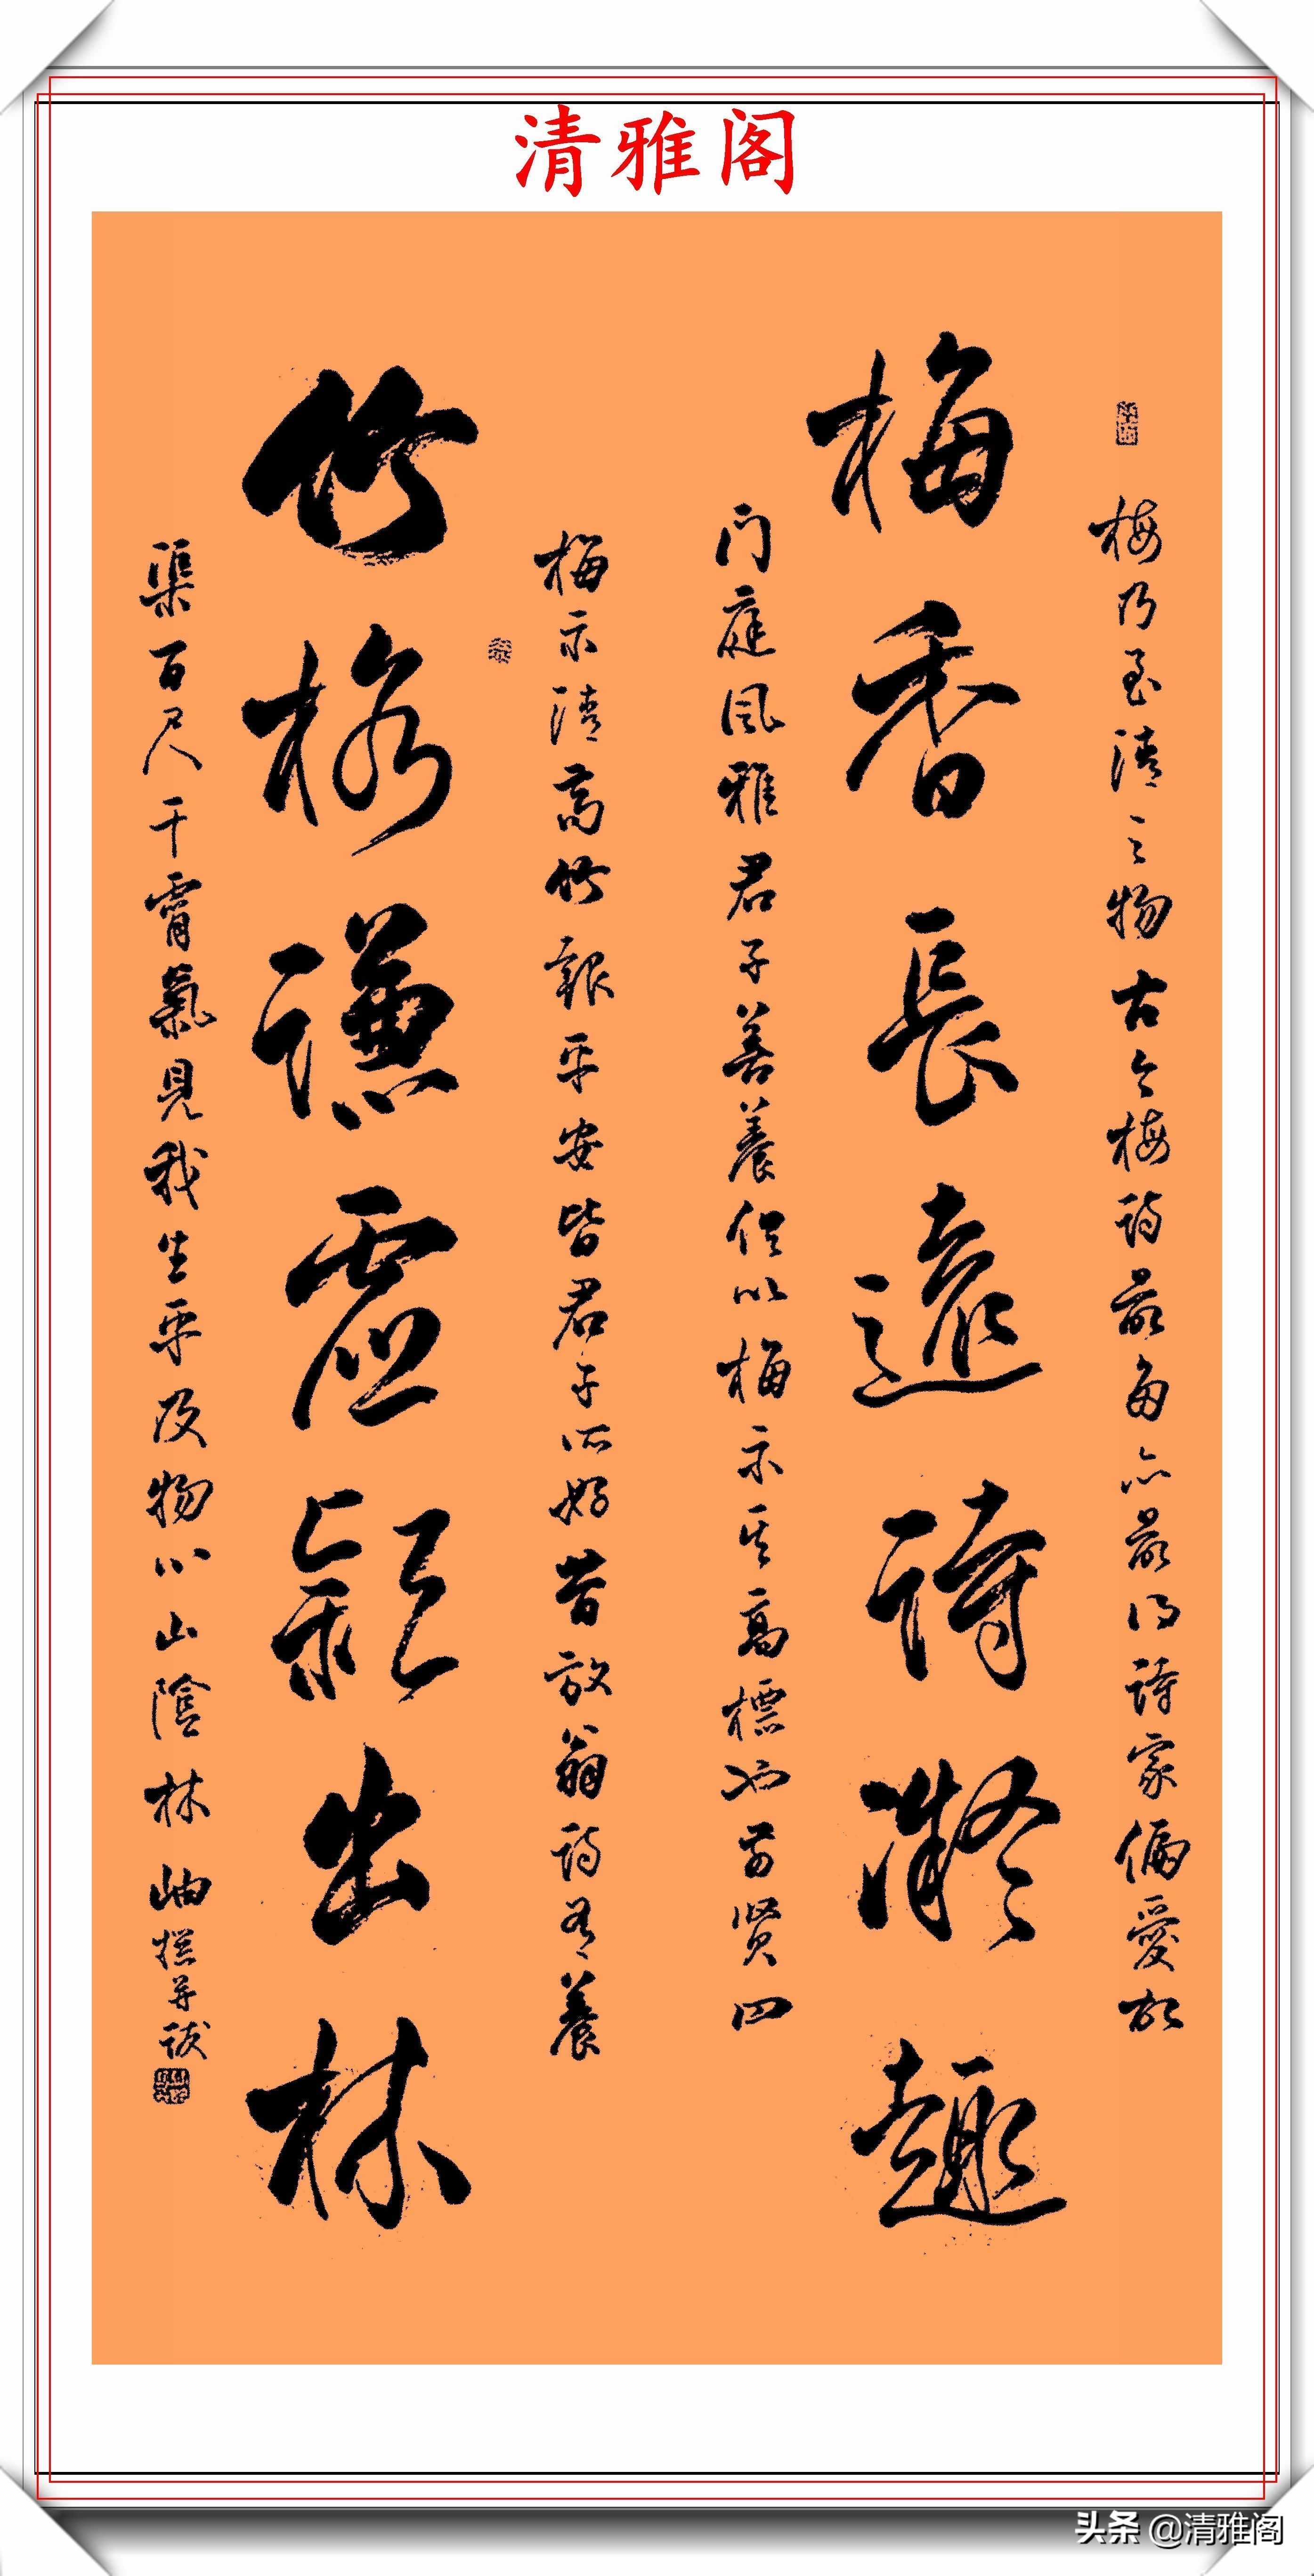 清雅阁
梅乃至清之物古今梅诗最多亦最得詩家偏愛故
梅香長遠詩凝趣
门庭风雅君子善養以梅示其高標前贤四
梅示清高竹報平安皆君子所好昔放翁诗有養
竹格謙虚穎出林
渠百尺干霄氣見我生平及物心山陰林岫撰并跋
头条 @清雅阁